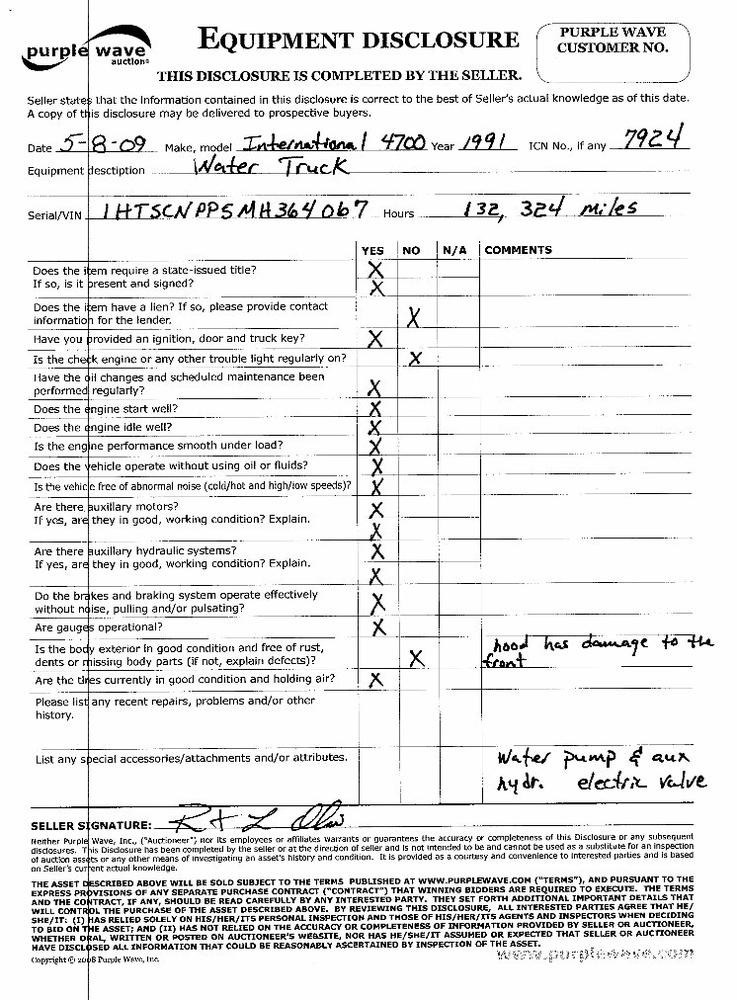 purple wave
auction®
EQUIPMENT DISCLOSURE
PURPLE WAVE
CUSTOMER NO.
THIS DISCLOSURE IS COMPLETED BY THE SELLER.
Seller states that the information contained in this disclosure is correct to the best of Seller's actual knowledge as of this date.
A copy of this disclosure may be delivered to prospective buyers.
Date 5-8-09 Make, model International 4700 Year 1991 TCN No., if any 7924
Equipment desctiption Water Truck
Serial/VIN 1HTSCNPP5MH364067 Hours 132,324 miles
YES NO N/A COMMENTS
Does the item require a state-issued title? X
If so, is it present and signed? X
Does the item have a lien? If so, please provide contact
information for the lender. X
Have you provided an ignition, door and truck key? X
Is the check engine or any other trouble light regularly on? X
Have the oil changes and scheduled maintenance been
performed regularly? X
Does the engine start well? X
Does the engine idle well? X
Is the engine performance smooth under load? X
Does the vehicle operate without using oil or fluids? X
Is the vehicle free of abnormal noise (cold/hot and high/low speeds)? X
Are there auxillary motors? X
If yes, are they in good, working condition? Explain. X
Are there auxillary hydraulic systems? X
If yes, are they in good, working condition? Explain. X
Do the brakes and braking system operate effectively
without noise, pulling and/or pulsating? X
Are gauges operational? X
Is the body exterior in good condition and free of rust, hood has damage to the
dents or missing body parts (if not, explain defects)? X front
Are the tires currently in good condition and holding air? X
Please list any recent repairs, problems and/or other
history.
List any special accessories/attachments and/or attributes. Water pump & aux
hydr. electric valve
SELLER SIGNATURE:
Neither Purple Wave, Inc., ("Auctioneer") nor its employees or affiliates warrants or guarantees the accuracy or completeness of this Disclosure or any subsequent
disclosures. This Disclosure has been completed by the seller or at the direction of seller and is not intended to be and cannot be used as a substitute for an inspection
of auction assets or any other means of investigating an asset's history and condition. It is provided as a courtusy and convenience to interested parties and is based
on Seller's current actual knowledge.
THE ASSET DESCRIBED ABOVE WILL BE SOLD SUBJECT TO THE TERMS PUBLISHED AT WWW.PURPLEWAVE.COM ("TERMS"), AND PURSUANT TO THE
EXPRESS PROVISIONS OF ANY SEPARATE PURCHASE CONTRACT ("CONTRACT") THAT WINNING BIDDERS ARE REQUIRED TO EXECUTE. THE TERMS
AND THE CONTRACT, IF ANY, SHOULD BE READ CAREFULLY BY ANY INTERESTED PARTY. THEY SET FORTH ADDITIONAL IMPORTANT DETAILS THAT
WILL CONTROL THE PURCHASE OF THE ASSET DESCRIBED ABOVE. BY REVIEWING THIS DISCLOSURE, ALL INTERESTED PARTIES AGREE THAT HE/
SHE/IT: (I) HAS RELIED SOLELY ON HIS/HER/ITS PERSONAL INSPECTION AND THOSE OF HIS/HER/ITS AGENTS AND INSPECTORS WHEN DECIDING
TO BID ON THE ASSET; AND (II) HAS NOT RELIED ON THE ACCURACY OR COMPLETENESS OF INFORMATION PROVIDED BY SELLER OR AUCTIONEER,
WHETHER ORAL, WRITTEN OR POSTED ON AUCTIONEER'S WEBSITE, NOR HAS HE/SHE/IT ASSUMED OR EXPECTED THAT SELLER OR AUCTIONEER
HAVE DISCLOSED ALL INFORMATION THAT COULD BE REASONABLY ASCERTAINED BY INSPECTION OF THE ASSET.
Copyright © 2008 Purple Wave, Inc.
www.purplewave.com